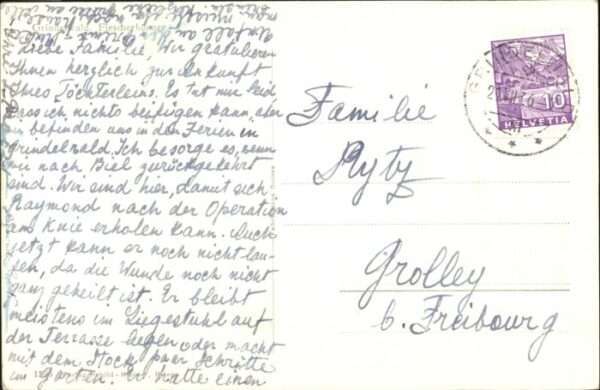 Grindelwald
Liebe Familie, Wir gratulieren
Ihnen herzlich zur Ankunft
Ihres Töchterleins. Es tut mir leid
dass ich nichts beifügen kann, aber
wir befinden uns in den Ferien in
Grindelwald. Ich besorge es, wenn
wir nach Biel zurückgekehrt
sind. Wir sind hier, damit sich
Raymond nach der Operation
am Knie erholen kann. Auch
jetzt kann er noch nicht lau-
fen, da die Wunde noch nicht
ganz geheilt ist. Er bleibt
meistens im Liegestuhl auf
der Terrasse liegen oder macht
mit dem Stock paar Schritte
im Garten. Er hatte einen
Unfall am
Familie
Rytz
Grolley
b. Freibourg
10
HELVETIA